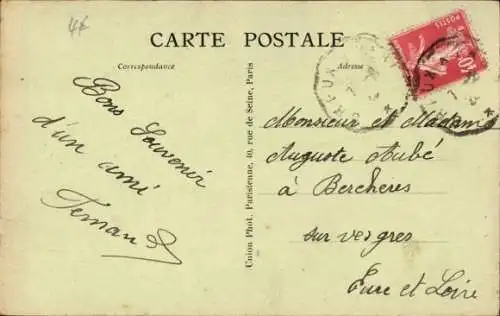 4€
CARTE POSTALE
Correspondance
Adresse
Bons Souvenir
d'un ami
Fernand
Union Phot. Parisienne, 40, rue de Seine, Paris
POSTES
Monsieur et Madame
Auguste Aubé
à Berchères
sur vesgres
Eure et Loire